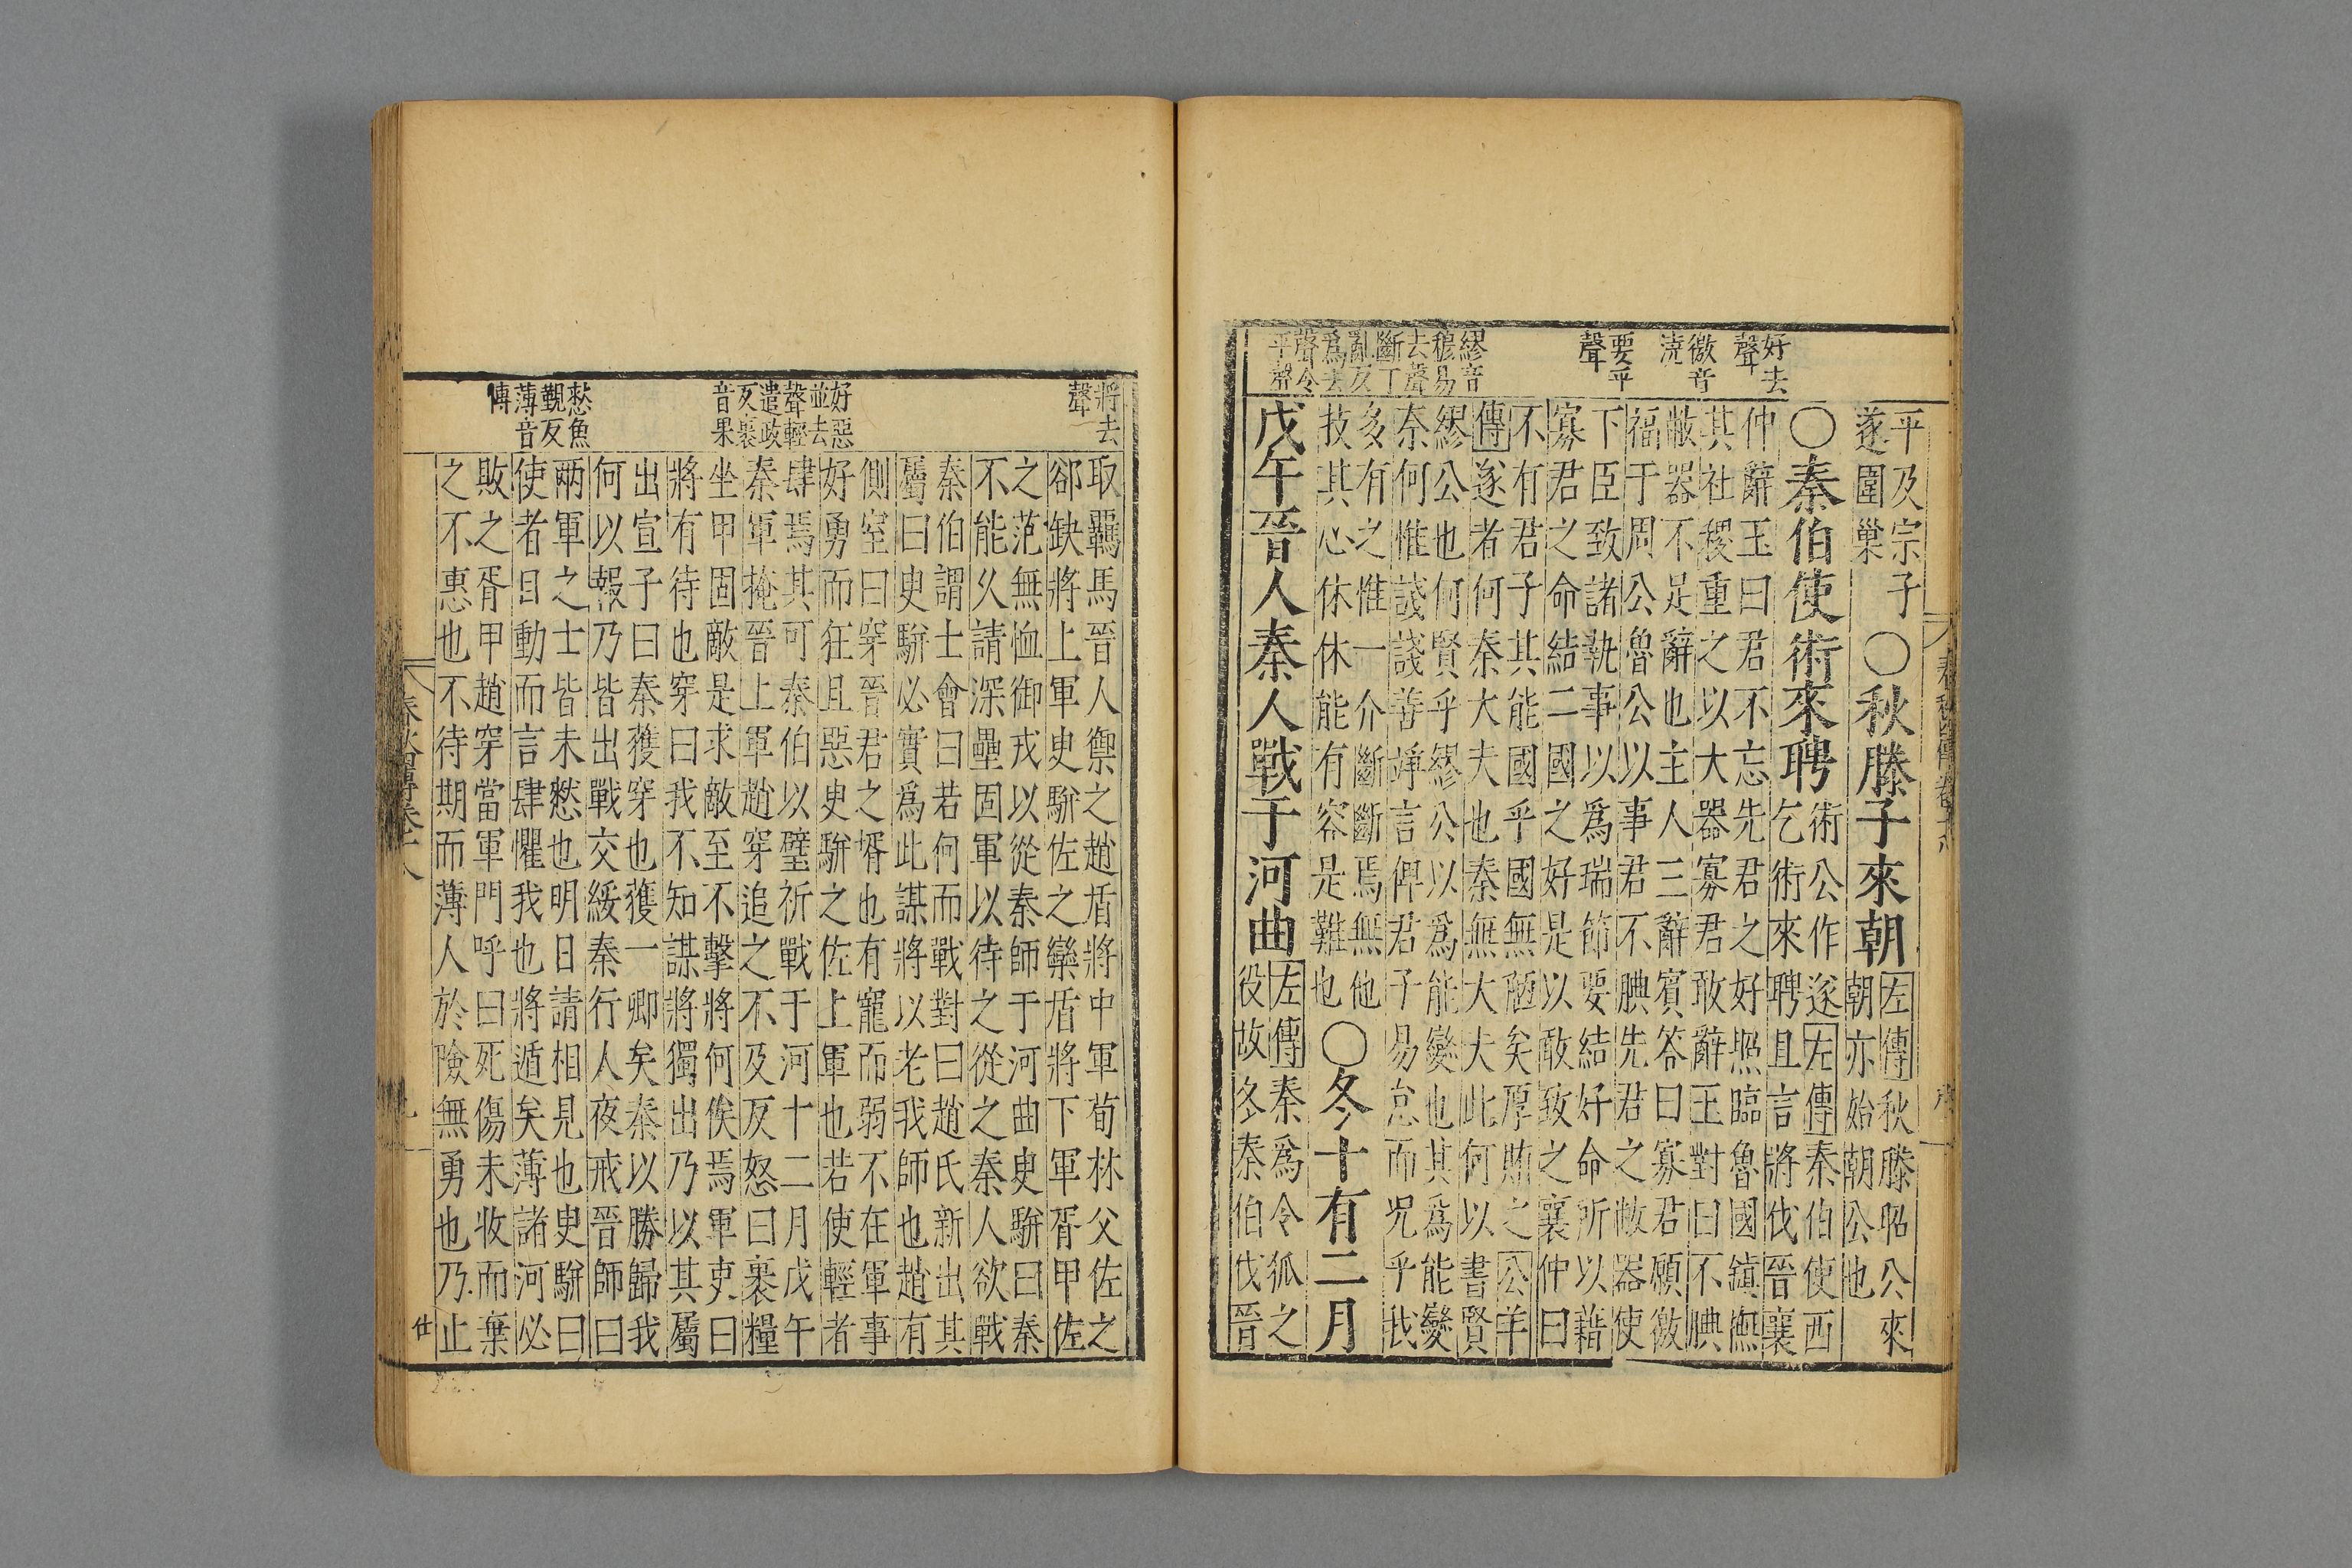 好去
聲
徼音
澆
要平
聲
繆音
穆易
去聲
斷丁
亂反
爲去
聲令
平聲
平及宗子
遂圍巢
○秋滕子來朝
左傳秋滕昭公來
朝亦始朝公也
○秦伯使術來聘
術公作遂左傳秦伯使西
乞術來聘且言將伐晉襄
仲辭玉曰君不忘先君之好照臨魯國鎮撫
其社稷重之以大器寡君敢辭玉對曰不腆
敝器不足辭也主人三辭賓答曰寡君願徼
福于周公魯公以事君不腆先君之敝器使
下臣致諸執事以爲瑞節要結好命所以藉
寡君之命結二國之好是以敢致之襄仲曰
不有君子其能國乎國無陋矣厚賄之公羊
傳遂者何秦大夫也秦無大夫此何以書賢
繆公也何賢乎繆公以爲能變也其爲能變
奈何惟諓諓善竫言俾君子易怠而況乎我
多有之惟一介斷斷焉無他
技其心休休能有容是難也
○冬十有二月
戊午晉人秦人戰于河曲
左傳秦爲令狐之
役故冬秦伯伐晉
將去
聲
好惡
並去
聲輕
遣政
反裹
音果
憖魚
覲反
薄音
傳
取羈馬晉人禦之趙盾將中軍荀林父佐之
郤缺將上軍臾駢佐之欒盾將下軍胥甲佐
之范無恤御戎以從秦師于河曲臾駢曰秦
不能久請深壘固軍以待之從之秦人欲戰
秦伯謂士會曰若何而戰對曰趙氏新出其
屬曰臾駢必實爲此謀將以老我師也趙有
側室曰穿晉君之壻也有寵而弱不在軍事
好勇而狂且惡臾駢之佐上軍也若使輕者
肆焉其可秦伯以璧祈戰于河十二月戊午
秦軍掩晉上軍趙穿追之不及反怒曰裹糧
坐甲固敵是求敵至不擊將何俟焉軍吏曰
將有待也穿曰我不知謀將獨出乃以其屬
出宣子曰秦獲穿也獲一卿矣秦以勝歸我
何以報乃皆出戰交綏秦行人夜戒晉師曰
兩軍之士皆未憖也明日請相見也臾駢曰
使者目動而言肆懼我也將遁矣薄諸河必
敗之胥甲趙穿當軍門呼曰死傷未收而棄
之不惠也不待期而薄人於險無勇也乃止